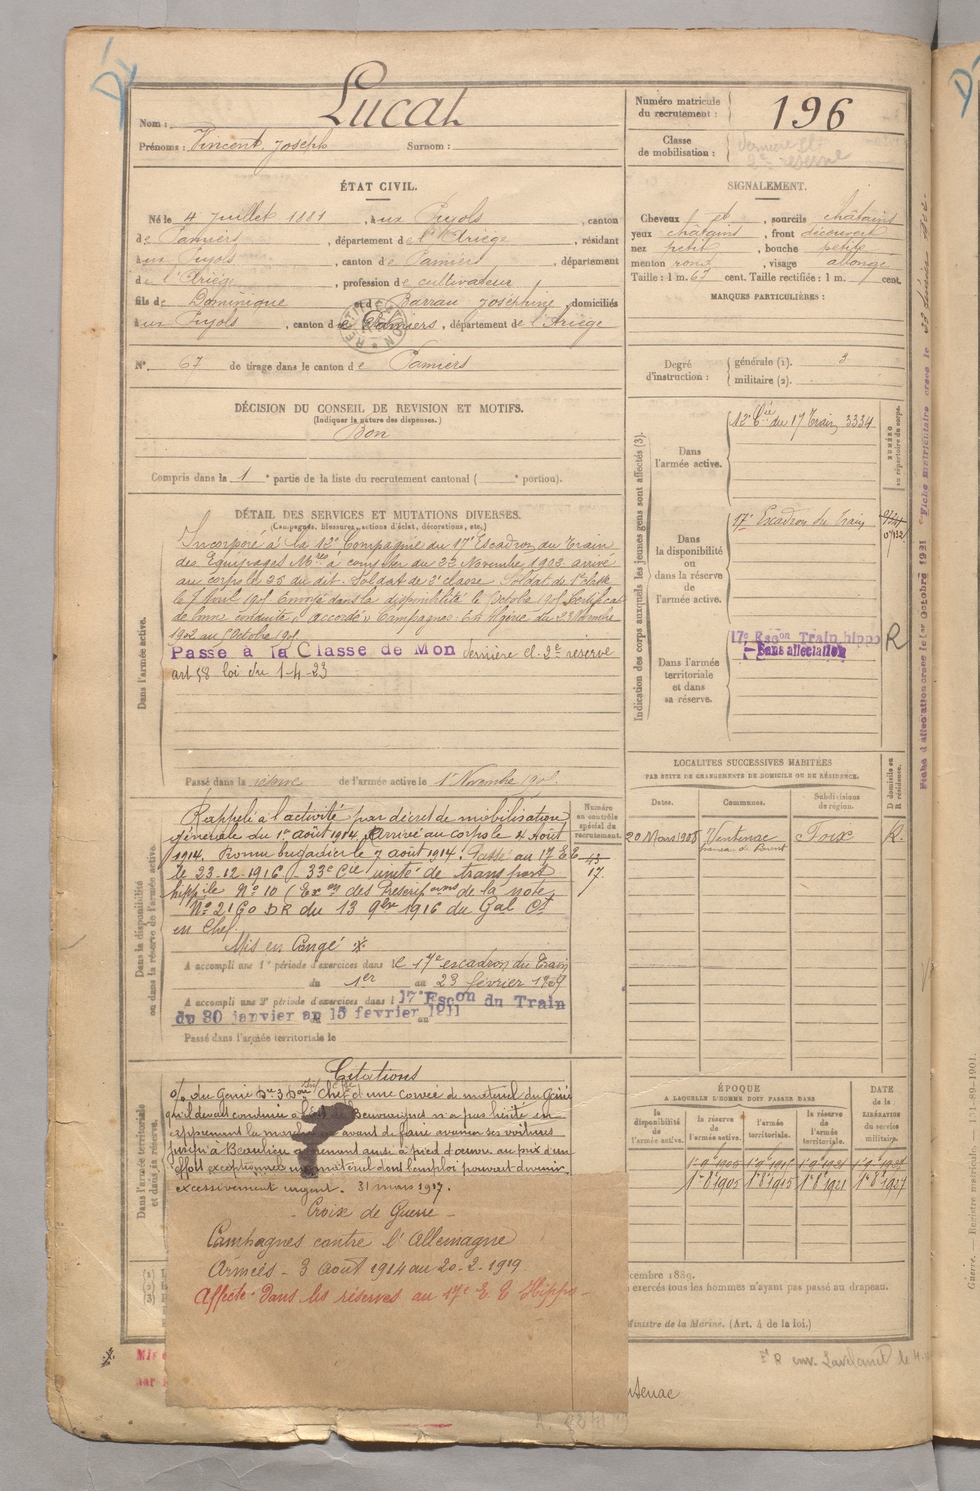 Nom : Lucat
Prénoms : Vincent, Joseph Surnom :
Numéro matricule du recrutement : 196
Classe de mobilisation : dernière cl. 2e réserve
ÉTAT CIVIL.
Né le 4 Juillet 1881, à ux Pujols, canton
de Pamiers, département de l'Ariège, résidant
à ux Pujols, canton de Pamiers, département
de l'Ariège, profession de cultivateur
fils de Dominique et de Barrau Joséphine, domiciliés
à ux Pujols, canton de Pamiers, département de l'Ariège
N° 67 de tirage dans le canton de Pamiers
SIGNALEMENT.
Cheveux et, sourcils châtains
yeux châtains, front découvert
nez petit, bouche petite
menton rond, visage allongé
Taille : 1 m. 67 cent. Taille rectifiée : 1 m. cent.
MARQUES PARTICULIÈRES :
Degré d'instruction : générale (1). 3
militaire (2).
DÉCISION DU CONSEIL DE REVISION ET MOTIFS.
(Indiquer la nature des dispenses.)
Bon
Compris dans la 1e partie de la liste du recrutement cantonal ( e portion).
DÉTAIL DES SERVICES ET MUTATIONS DIVERSES.
(Campagnes, blessures, actions d'éclat, décorations, etc.)
Dans l'armée active.
Incorporé à la 12e Compagnie du 17e Escadron du Train
des Equipages Mres à compter du 23 Novembre 1902 arrivé
au corps le 25 du dit. Soldat de 2e classe. Soldat de 1e classe
le 7 Avril 1905 Envoyé dans la disponibilité le Octobre 1905 Certificat
de bonne conduite "accordé" Campagnes : En Algérie du 23 Novembre
1902 au 1 Octobre 1905
Passé à la Classe de Mon dernière cl. 2e réserve
art 58 loi du 1-4-23
Passé dans la réserve de l'armée active le 1er Novembre 1905
Indication des corps auxquels les jeunes gens sont affectés (3).
NUMÉRO au répertoire du corps.
Dans l'armée active.
12e Cie du 17 Train 3334
Dans la disponibilité ou dans la réserve de l'armée active.
17e Escadron du Train
Dans l'armée territoriale et dans sa réserve.
17e Escon Train hippo R
Sans affectation
Dans la disponibilité ou dans la réserve de l'armée active.
Numéro au contrôle spécial du recrutement.
Rappelé à l'activité par décret de mobilisation
générale du 1er août 1914. Arrivé au corps le 4 Août
1914. Promu brigadier le 7 août 1914. Passé au 17 E E
le 23-12-1916 - 33e Cie unité de transport
hippile N° 10 (Exon des Prescriptions de la note
N° 2160 DR du 13 9bre 1916 du Gal Ct
en Chef.
Mis en Congé
A accompli une 1e période d'exercices dans le 17e escadron du Train
du 1er au 23 février 1909
A accompli une 2e période d'exercices dans l 17e Escon du Train
du 30 janvier au 15 fevrier 1911
Passé dans l'armée territoriale le
LOCALITÉS SUCCESSIVES HABITÉES
PAR SUITE DE CHANGEMENTS DE DOMICILE OU DE RÉSIDENCE.
D domicile ou R résidence.
Dates. Communes. Subdivisions de région.
20 Mars 1908 Ventenac Foix R.
ÉPOQUE
A LAQUELLE L'HOMME DOIT PASSER DANS
DATE de la LIBÉRATION du service militaire.
la disponibilité de l'armée active. la réserve de l'armée active. l'armée territoriale. la réserve de l'armée territoriale.
1er 8bre 1905 1er 8 1915 1er 8 1921 1er 8 1927
Dans l'armée territoriale et dans sa réserve.
Citations
chef d'une corvée de matériel du Génie
qu'il devait conduire à Beauvaignes n'a pas hésité en
apprenant la marche avant de faire avancer ses voitures
jusqu'à Beaulieu amenant ainsi à pied d'œuvre au prix d'un
effort exceptionnel un matériel dont l'emploi pouvait devenir
excessivement urgent. 31 mars 1917.
- Croix de Guerre -
Campagnes contre l'Allemagne
Armées - 3 août 1914 au 20.2.1919
Affecté dans les réserves au 17e E E Hippo -
écembre 1889.
exercés tous les hommes n'ayant pas passé au drapeau.
Ministre de la Marine. (Art. 4 de la loi.)
tenac
Guerre. — Registre matricule. — 151-89-1901.